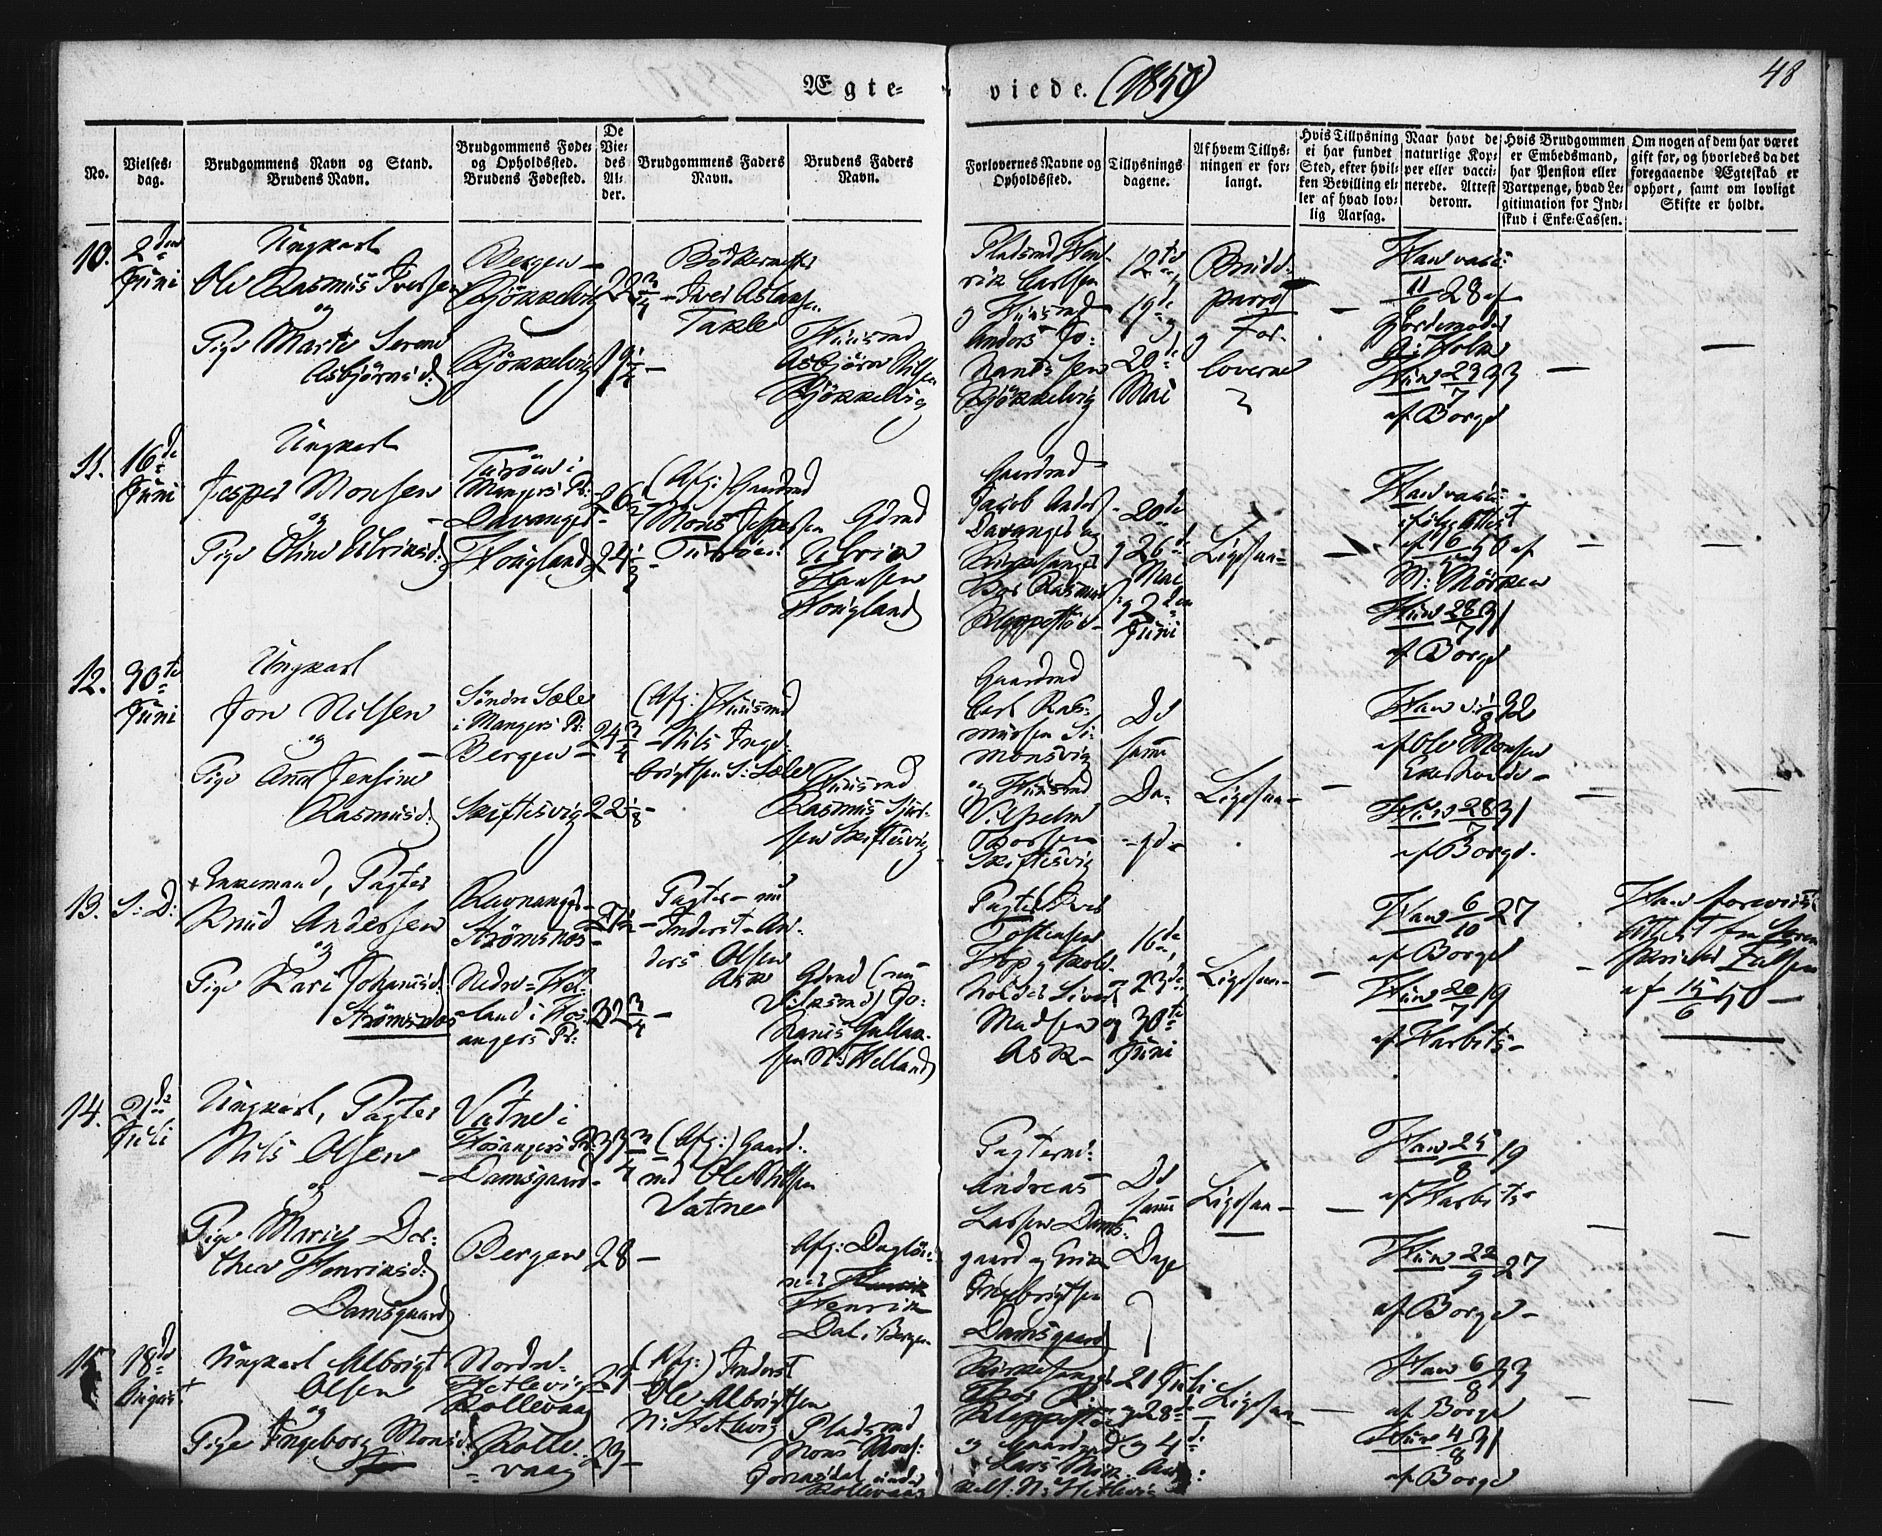 Ægte-
viede. (1850)
48
No.
Vielses-
dag.
Brudgommens Navn og Stand.
Brudens Navn.
Brudgommens Føde-
og Opholdssted.
Brudens Fødested.
De
Vie-
des
Al-
der.
Brudgommens Faders
Navn.
Brudens Faders
Navn.
Forlovernes Navne og
Opholdssted.
Tillysnings
dagene.
Af hvem Tillys-
ningen er for-
langt.
Hvis Tillysning
ei har fundet
Sted, efter hvil-
ken Bevilling el-
ler af hvad lov-
lig Aarsag.
Naar havt de
naturlige Kop-
per eller vacci-
nerede. Attest
derom.
Hvis Brudgommen
er Embedsmand,
har Pension eller
Vartpenge, hvad Le-
gitimation for Ind-
skud i Enke-Cassen.
Om nogen af dem har været
gift før, og hvorledes da det
foregaaende Ægteskab er
ophørt, samt om lovligt
Skifte er holdt.
10.
2den
Juni
Ungkarl
Ole Rasmus Iversen
og
Pige Marte Serene
Asbjørnsd:
Bergen -
Kjøkkelvig
Kjøkkelvig
22 3/4 -
19 1/4 -
Bødkermester
Iver Aslaksen
Takle
Huusmd
Asbjørn Nilsen
Kjøkkelvig
Pladsmd Hen-
rik Carlsen
og Huusmd
Anders Jo-
hannessen
Kjøkkelvig
12te
19de og
20de
Mai
Brude-
parret
og For-
loverne
Han vacc:
11/6 28 af
Jordemoder
G: Holm
Hun 23/7 33
af Borge
-
-
-
11.
16de
Juni
Ungkarl
Jesper Monsen
og
Pige Oline Ulriksd:
Turøen i
Mangers Pr:
Davanger -
Hougland
26 -
24 1/3 -
(Afg:) Gaardmd
Mons Jespersen
Turøen
Gdmd
Ulrik
Hansen
Hougland
Gaardmd
Jacob Anders-
Davanger og
Kirkesanger
Thor Rasmus
Kleppestøe -
20de
og 26de
Mai
og 2den
Juni
Ligesaa -
-
Han vacc:
ifølge Attest
af 6/5 50 af
M: Mørken
Hun 28/7 31
af Borge
-
-
12.
30te
Juni
Ungkarl
Jon Nilsen
og
Pige Ane Jensine
Rasmusd:
Søndre Sæle
i Mangers Pr:
Bergen -
Skiftesvig
24 3/4 -
22 1/8 -
(Afg:) Huusmd
Nils Inge-
brigtsen S: Sæle
Huusmd
Rasmus Sjur-
sen Skiftesvig
Gaardmd
Carl Ras-
mussen Si-
monsvig
og Huusmd
Vilhelm
Thorsen
Skiftesvig
De
samme
Da-
ge -
Ligesaa -
Han v: 1/9 32
af Ole Monsen
Ekerhovde -
Hun 28/7 31
af Borge.
-
-
13.
S: D:
+ Enkemand, Pagter
Knud Andersen
og
Pige Kari Johannisd:
Strømsnes
Ravnanger -
Strømsnes -
Nedre-Hel-
land i Hos-
angers Pr:
27 1/2 -
32 3/4 -
Pagter - nu
Inderst - An-
ders Olsen
Ask
Gdmd (nu
Vilkaarsmd) Jo-
hannis Gullak-
sen N: Helland
Pagter Iver
Tostensen
Hop og Skole-
holder Sivert
Madsen
Ask -
16de
og 23de
og 30te
Juni
Ligesaa -
-
Han 6/10 27
af Borge
Hun 20/7 19
af Harbits -
-
Han foreviste
Attest fra Soren-
skriver Falsen
af 15/6 50 -
14.
21de
Juli
Ungkarl, Pagter
Nils Olsen
og
Pige Marie Dor-
thea Henriksd:
Damsgaard
Vatne i
Hosangers Pr:
Damsgaard -
Bergen
33 3/4
28 -
(Afg:) Gaard-
md Ole Nilsen
Vatne
Afg: Dagløn-
ner
Henrik
Dal i Bergen
Pagterne
Andreas
Larsen Dams-
gaard og Erik
Ingebrigtsen
Damsgaard
De
samme
Dage
Ligesaa -
-
Han 25/8 19
af Harbits -
Hun 22/9 27
af Borge -
-
-
15
18de
August
Ungkarl Albrigt
Olsen
og
Pige Ingeborg Monsd:
Nordre-
Hetlevig
Rollevaag
Rolle-
vaag
27 -
23 -
(Afg:) Inderst
Ole Albrigtsen
N: Hetlevig
Pladsmd
Mons Mons:
under
Rollevaag
Kirkesanger
Thor
Kleppestøe
og Gaardmd
Lars
N: Hetlevig
21 Juli
og 28de
og 4de
Aug:
Ligesaa -
-
Han 6/8 33
af Borge
Hun 4/8 31
af Borge
-
-